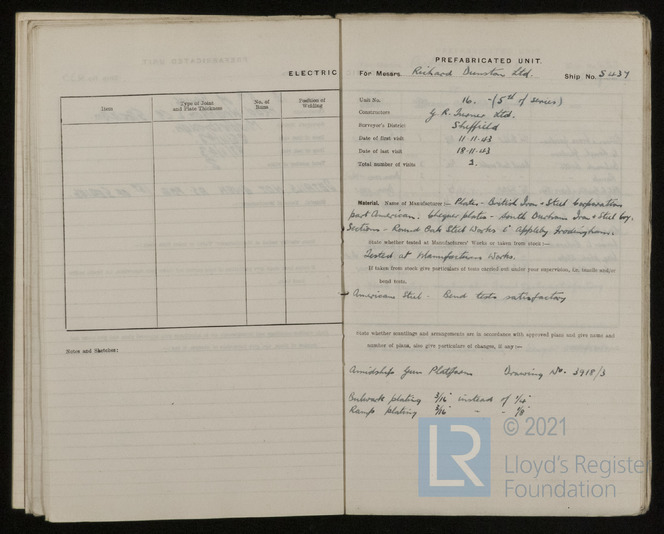 ELECTRIC
Item
Type of Joint and Plate Thickness
No. of Runs
Position of Welding
Notes and Sketches:
PREFABRICATED UNIT.
For Messrs. Richard Dunston Ltd. Ship No. S 437
Unit No. 16. - (5th of series)
Constructors G. R. Turner Ltd.
Surveyor's District Sheffield
Date of first visit 11.11.43
Date of last visit 18.11.43
Total number of visits 2.
Material. Name of Manufacturer:— Plates - British Iron & Steel Corporation
part American. Chequer plates - South Durham Iron & Steel Coy.
Sections - Round Oak Steel Works & Appleby Frodingham.
State whether tested at Manufacturers' Works or taken from stock:—
Tested at Manufacturers Works.
If taken from stock give particulars of tests carried out under your supervision, i.e. tensile and/or
bend tests.
American Steel - Bend tests satisfactory
State whether scantlings and arrangements are in accordance with approved plans and give name and
number of plans, also give particulars of changes, if any:—
Amidships Gun Platform Drawing No. 3918/3
Bulwark plating 3/16" instead of
Ramp plating 3/16" - -
LR
© 2021
Lloyd's Register
Foundation